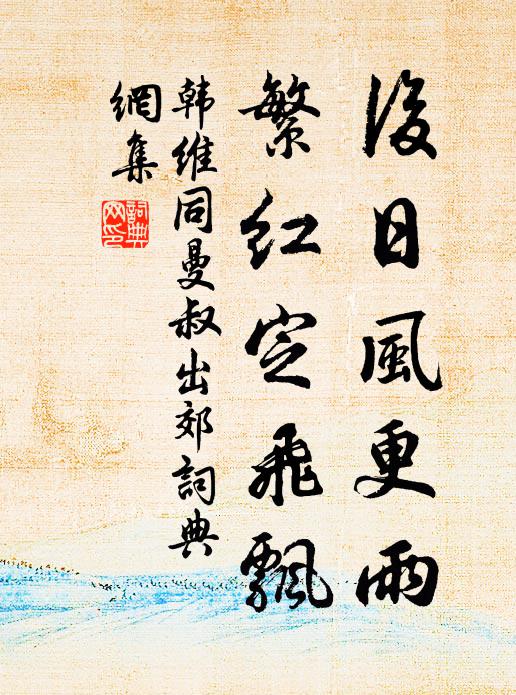 後日風更雨
繁红定飛飄
韩維同曼叔出郊詞典
網集
詞典
网印